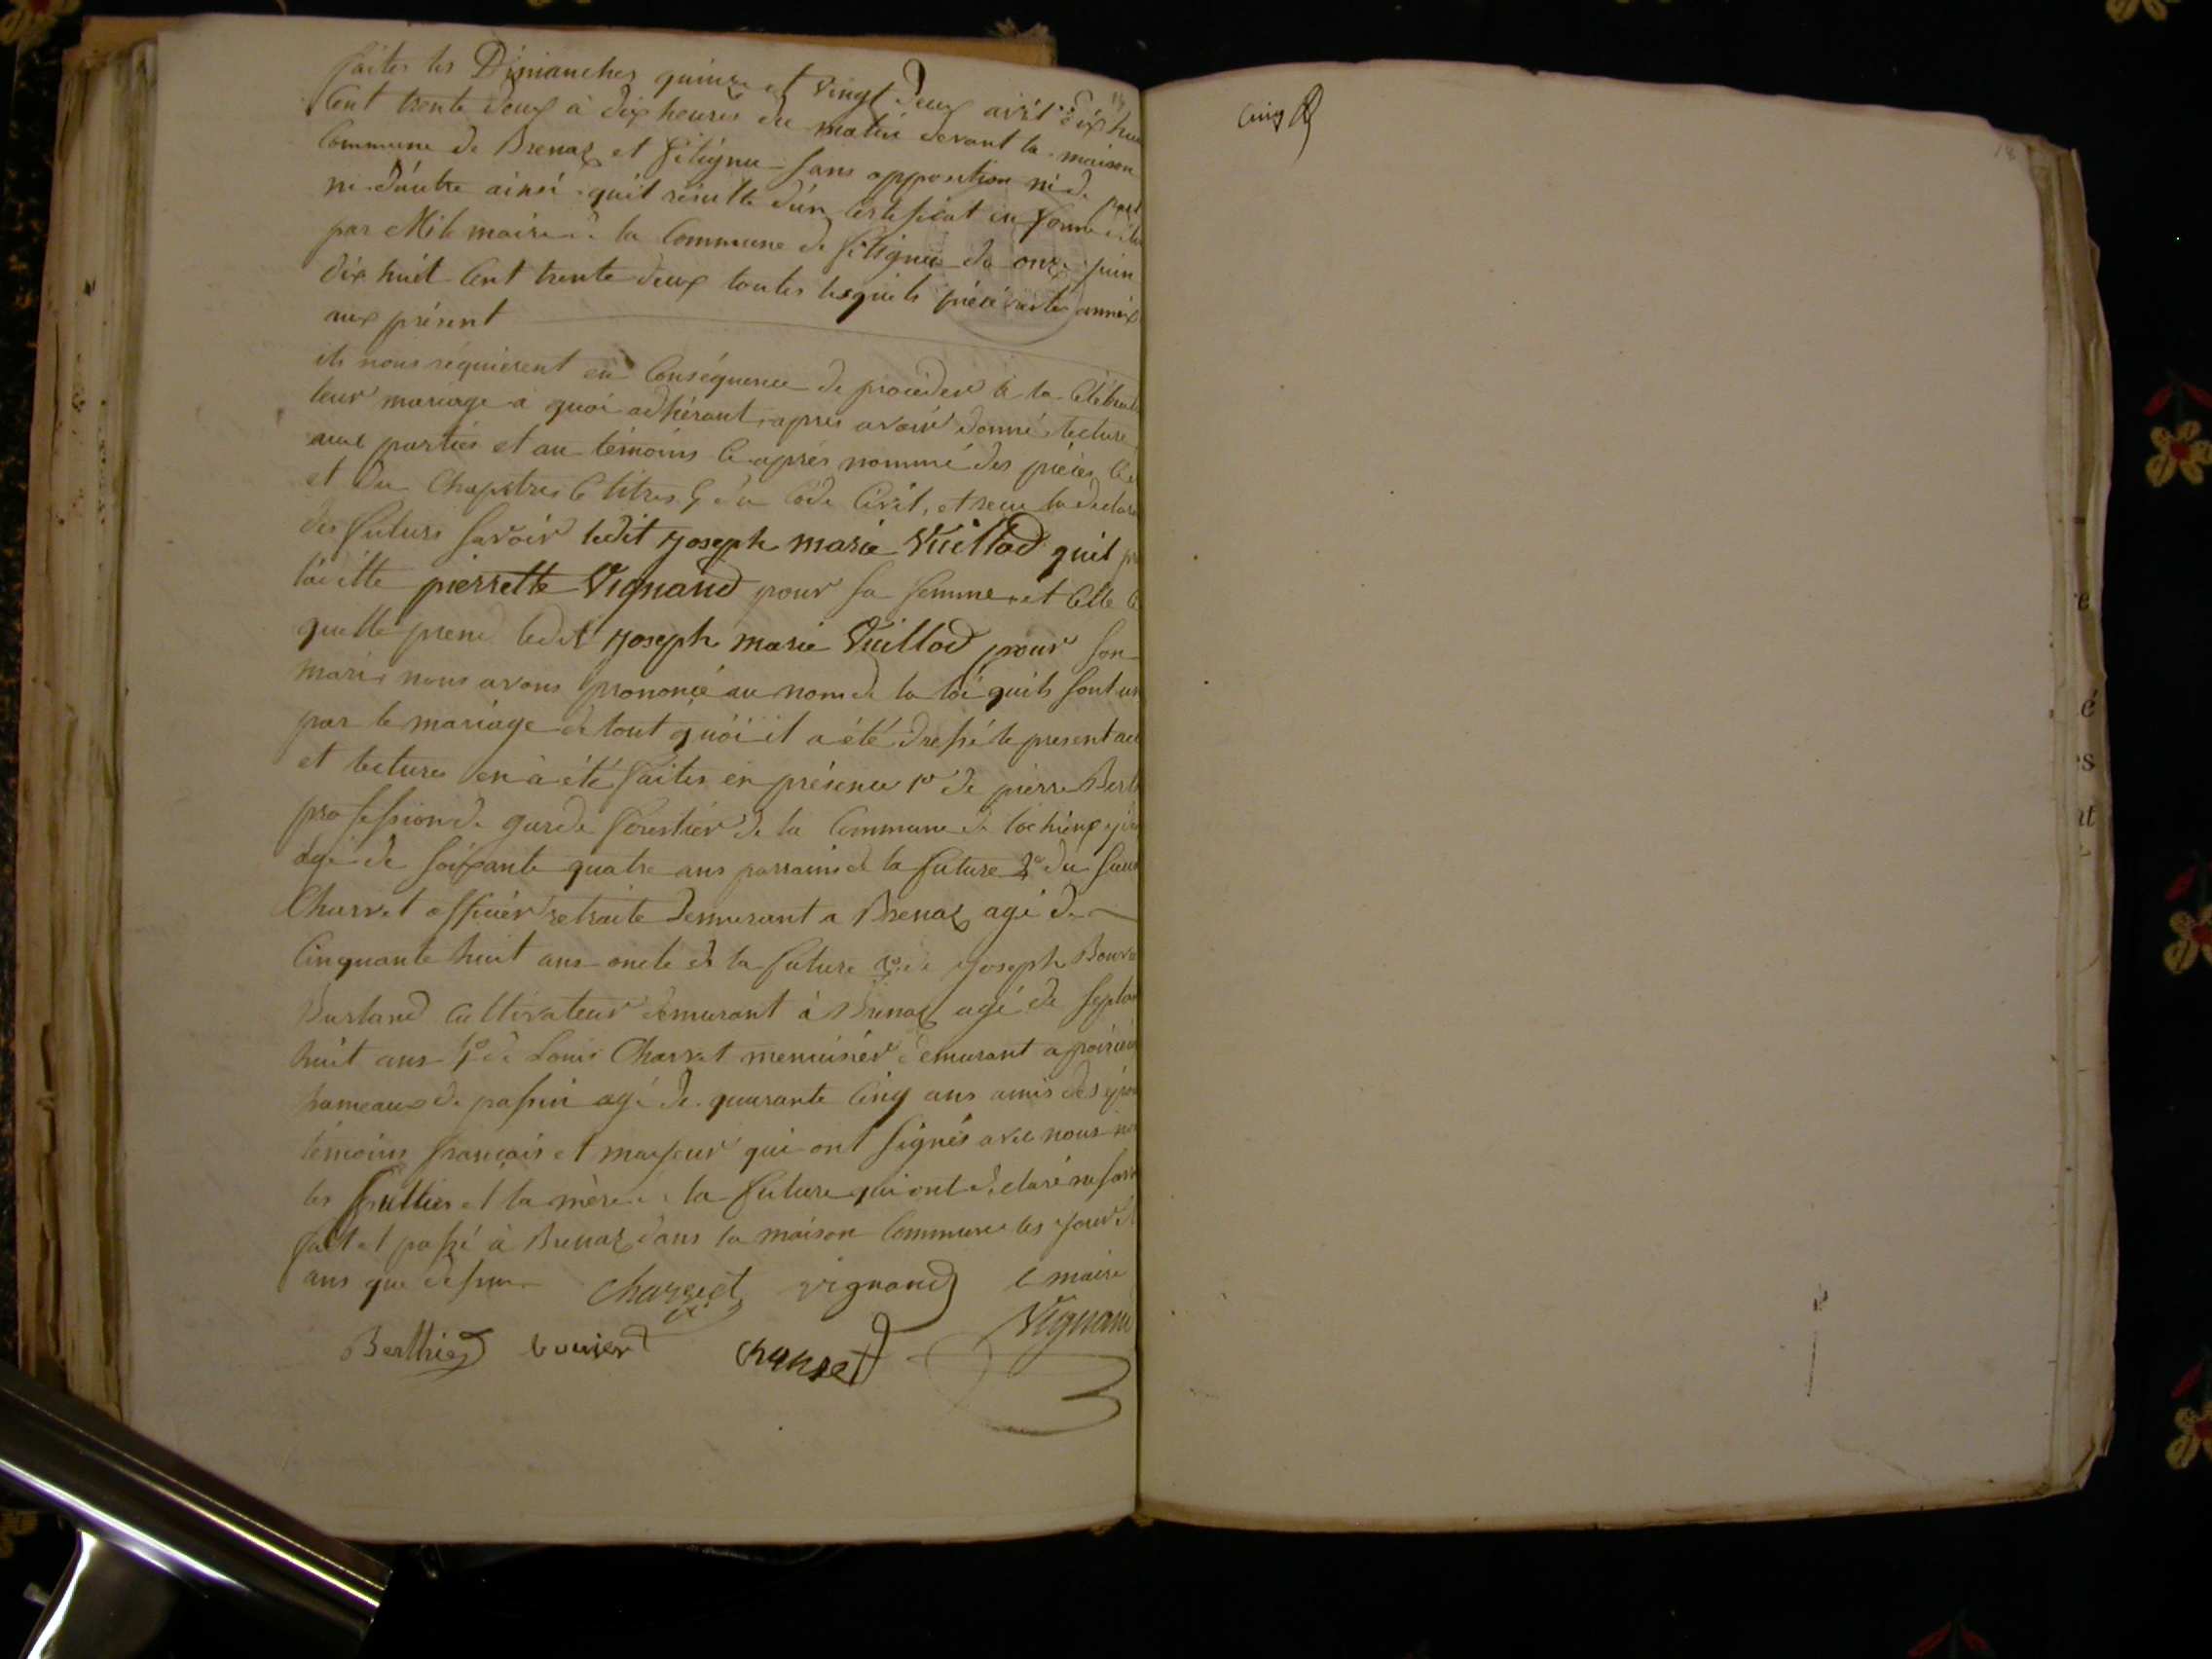 faites les Dimanches quinze et vingt deux avril dix hui
Cent trente deux à dix heures du matin devant la maison
Commune de Brenaz et fitignu sans opposition ni de part
ni d'autre ainsi quil résulte d'un certificat en forme
par Mile maire de la Commune de fitignu du onze juin
dix huit Cent trente deux toutes lesquels pièce annéx
aux présent
ils nous réquierent en Conséquence de procéder à la Célébrat
leur mariage a quoi adhérant, apres avoir donné lecture
aux parties et au témoins Ci après nommé des pièces
et du Chapitre 6 titres 5 du Code Civil, et recu la declara
des futurs savoir ledit joseph marie Vuillod quil
pierrette Vignand pour sa femme et Celle
quelle prend ledit joseph marie Vuillod pour son
mari nous avons prononcé au nom de la loi quils sont un
par le mariage de tout quoi il a été dressé le present ac
et lectures en à été faites en présence 1º de pierre Bert
profession de garde forestier de la Commune de lochieux
agé de soixante quatre ans parrain de la future 2º du sieur
Charvet officier retraite demurant a Brenaz agé de
Cinquante huit ans oncle de la future 3º de joseph Bouv
Burland Cultivateur demurant à Brenaz agé de septan
huit ans 4º de Louis Charvet menuisier demurant a poirieu
hameaux de passin agé de quarante Cinq ans amis des épou
témoins francais et majeur qui ont signés avec nous
les et la mère de la future qui ont déclaré ne savo
fait et passé à Brenaz dans la maison Commune les jour et
ans que dessus Charvet vignand le maire
Vignand
Berthier bouvier charvet
Cinq
18